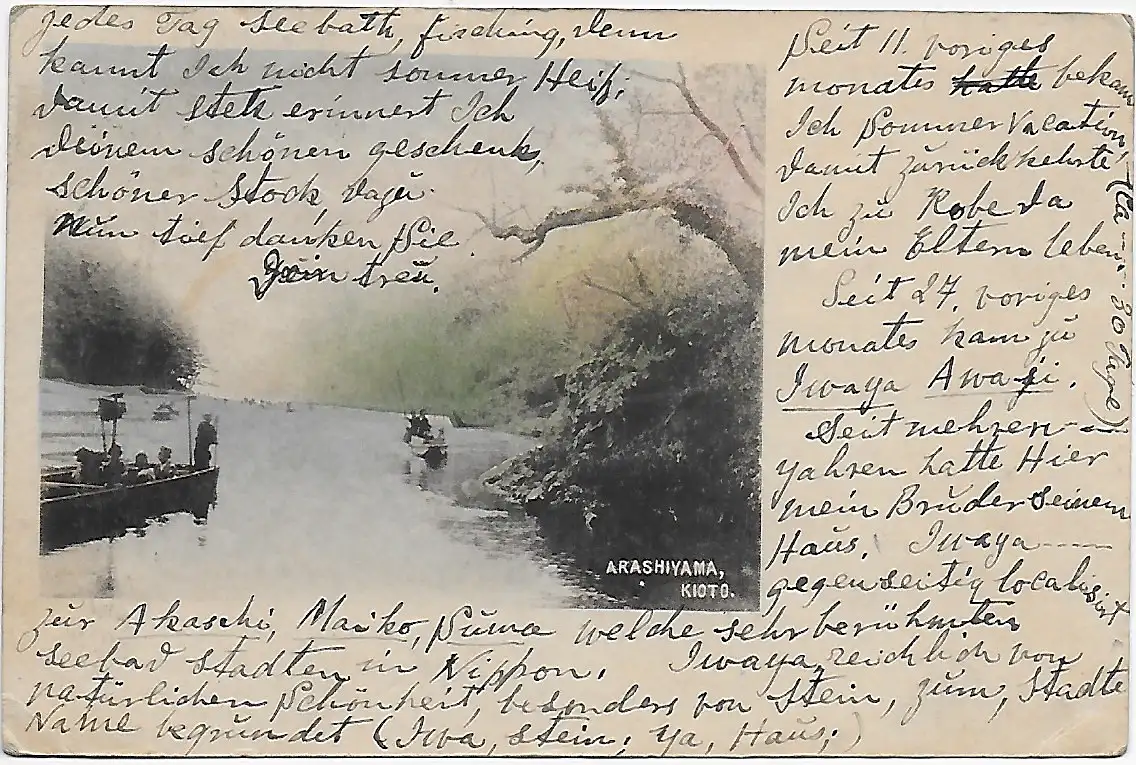 Seit 11. voriges
monates hatte bekam
Ich Sommer Vacation,
damit zurückkehrte
Ich zu Kobe da
mein Eltern leben.
(Ca. 30 Tage)
Seit 27. voriges
monates kam zu
Iwaya Awaji.
Seit mehren
yahren hatte Hier
mein Brüder seinem
Haus. Iwaya
gegenseitig localisirt
zur Akaschi, Maiko, Suma welche sehr berühmten
seebad stadten in Nippon. Iwaya, reichlich von
natürlichen Schönheit, besonders von Stein, zum, Stadte
Name begründet (Iwa, stein; Ya, Haus;)
jedes Tag seebath, fisching, denn
kannt Ich nicht sommer Heiß;
damit stets erinnert Ich
deinem schönen geschenk,
schöner Stock, dazu
Nun tief danken Sie
Dein treu.
ARASHIYAMA,
KIOTO.